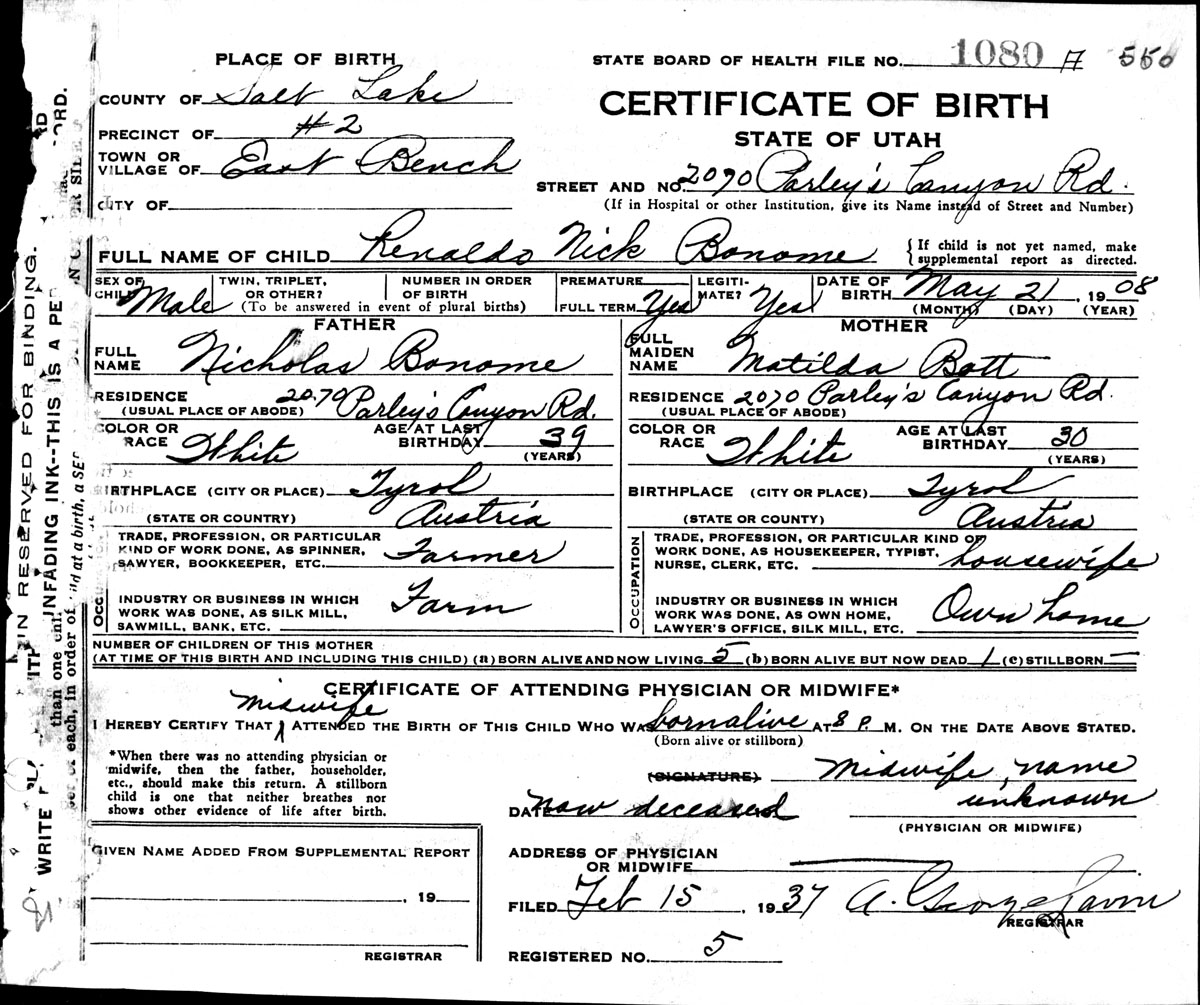 PLACE OF BIRTH
STATE BOARD OF HEALTH FILE NO. 1080 A 550
COUNTY OF Salt Lake
CERTIFICATE OF BIRTH
PRECINCT OF #2
STATE OF UTAH
TOWN OR VILLAGE OF East Bench
STREET AND NO. 2070 Parley's Canyon Rd.
CITY OF
(If in Hospital or other Institution, give its Name instead of Street and Number)
FULL NAME OF CHILD Renaldo Nick Bonome
{If child is not yet named, make supplemental report as directed.
SEX OF CHILD Male
TWIN, TRIPLET, OR OTHER?
NUMBER IN ORDER OF BIRTH
(To be answered in event of plural births)
PREMATURE
FULL TERM Yes
LEGITIMATE? Yes
DATE OF BIRTH May 21, 1908
(MONTH) (DAY) (YEAR)
FATHER
FULL NAME Nicholas Bonome
RESIDENCE 2070 Parley's Canyon Rd.
(USUAL PLACE OF ABODE)
COLOR OR RACE White
AGE AT LAST BIRTHDAY 39
(YEARS)
BIRTHPLACE (CITY OR PLACE) Tyrol
(STATE OR COUNTRY) Austria
TRADE, PROFESSION, OR PARTICULAR
KIND OF WORK DONE, AS SPINNER,
SAWYER, BOOKKEEPER, ETC. Farmer
INDUSTRY OR BUSINESS IN WHICH
WORK WAS DONE, AS SILK MILL,
SAWMILL, BANK, ETC. Farm
MOTHER
FULL MAIDEN NAME Matilda Bott
RESIDENCE 2070 Parley's Canyon Rd.
(USUAL PLACE OF ABODE)
COLOR OR RACE White
AGE AT LAST BIRTHDAY 30
(YEARS)
BIRTHPLACE (CITY OR PLACE) Tyrol
(STATE OR COUNTY) Austria
OCCUPATION
TRADE, PROFESSION, OR PARTICULAR KIND OF
WORK DONE, AS HOUSEKEEPER, TYPIST,
NURSE, CLERK, ETC. housewife
INDUSTRY OR BUSINESS IN WHICH
WORK WAS DONE, AS OWN HOME,
LAWYER'S OFFICE, SILK MILL, ETC. Own home
NUMBER OF CHILDREN OF THIS MOTHER
(AT TIME OF THIS BIRTH AND INCLUDING THIS CHILD) (a) BORN ALIVE AND NOW LIVING 5 (b) BORN ALIVE BUT NOW DEAD 1 (c) STILLBORN —
CERTIFICATE OF ATTENDING PHYSICIAN OR MIDWIFE*
midwife
I HEREBY CERTIFY THAT ATTENDED THE BIRTH OF THIS CHILD WHO WAS born alive AT 8 P. M. ON THE DATE ABOVE STATED.
(Born alive or stillborn)
*When there was no attending physician or
midwife, then the father, householder,
etc., should make this return. A stillborn
child is one that neither breathes nor
shows other evidence of life after birth.
(SIGNATURE) Midwife, name
DATE now deceased unknown
(PHYSICIAN OR MIDWIFE)
GIVEN NAME ADDED FROM SUPPLEMENTAL REPORT
, 19
REGISTRAR
ADDRESS OF PHYSICIAN
OR MIDWIFE
FILED Feb 15, 1937 A. George
REGISTRAR
REGISTERED NO. 5
IN RESERVED FOR BINDING.
UNFADING INK--THIS IS A PER
than one chil
each, in order of